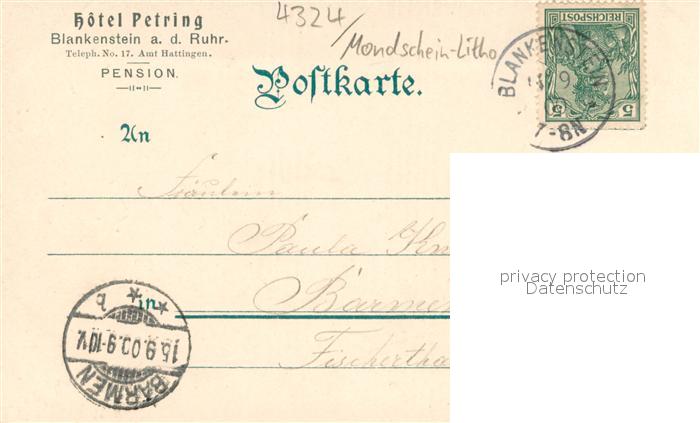 Hôtel Petring
Blankenstein a. d. Ruhr.
Teleph. No. 17. Amt Hattingen.
PENSION.
4324/
Mondschein-Litho
Postkarte.
REICHSPOST
5 5
BLANKENSTEIN
7-8N
An
Fräulein
Paula
in Barmen
Fischertha
BARMEN
15.9.00.9-10V.
b
privacy protection
Datenschutz